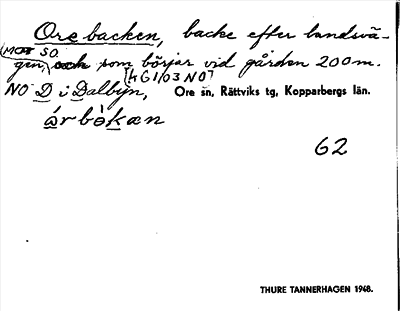 Orebacken, backe efter landsvä-
MOT SO.
gen, och som börjar vid gården 200m.
[HG1/03 NO]
NO D i Dalbyn, Ore sn, Rättviks tg, Kopparbergs län.
árbòkæn
62
THURE TANNERHAGEN 1948.